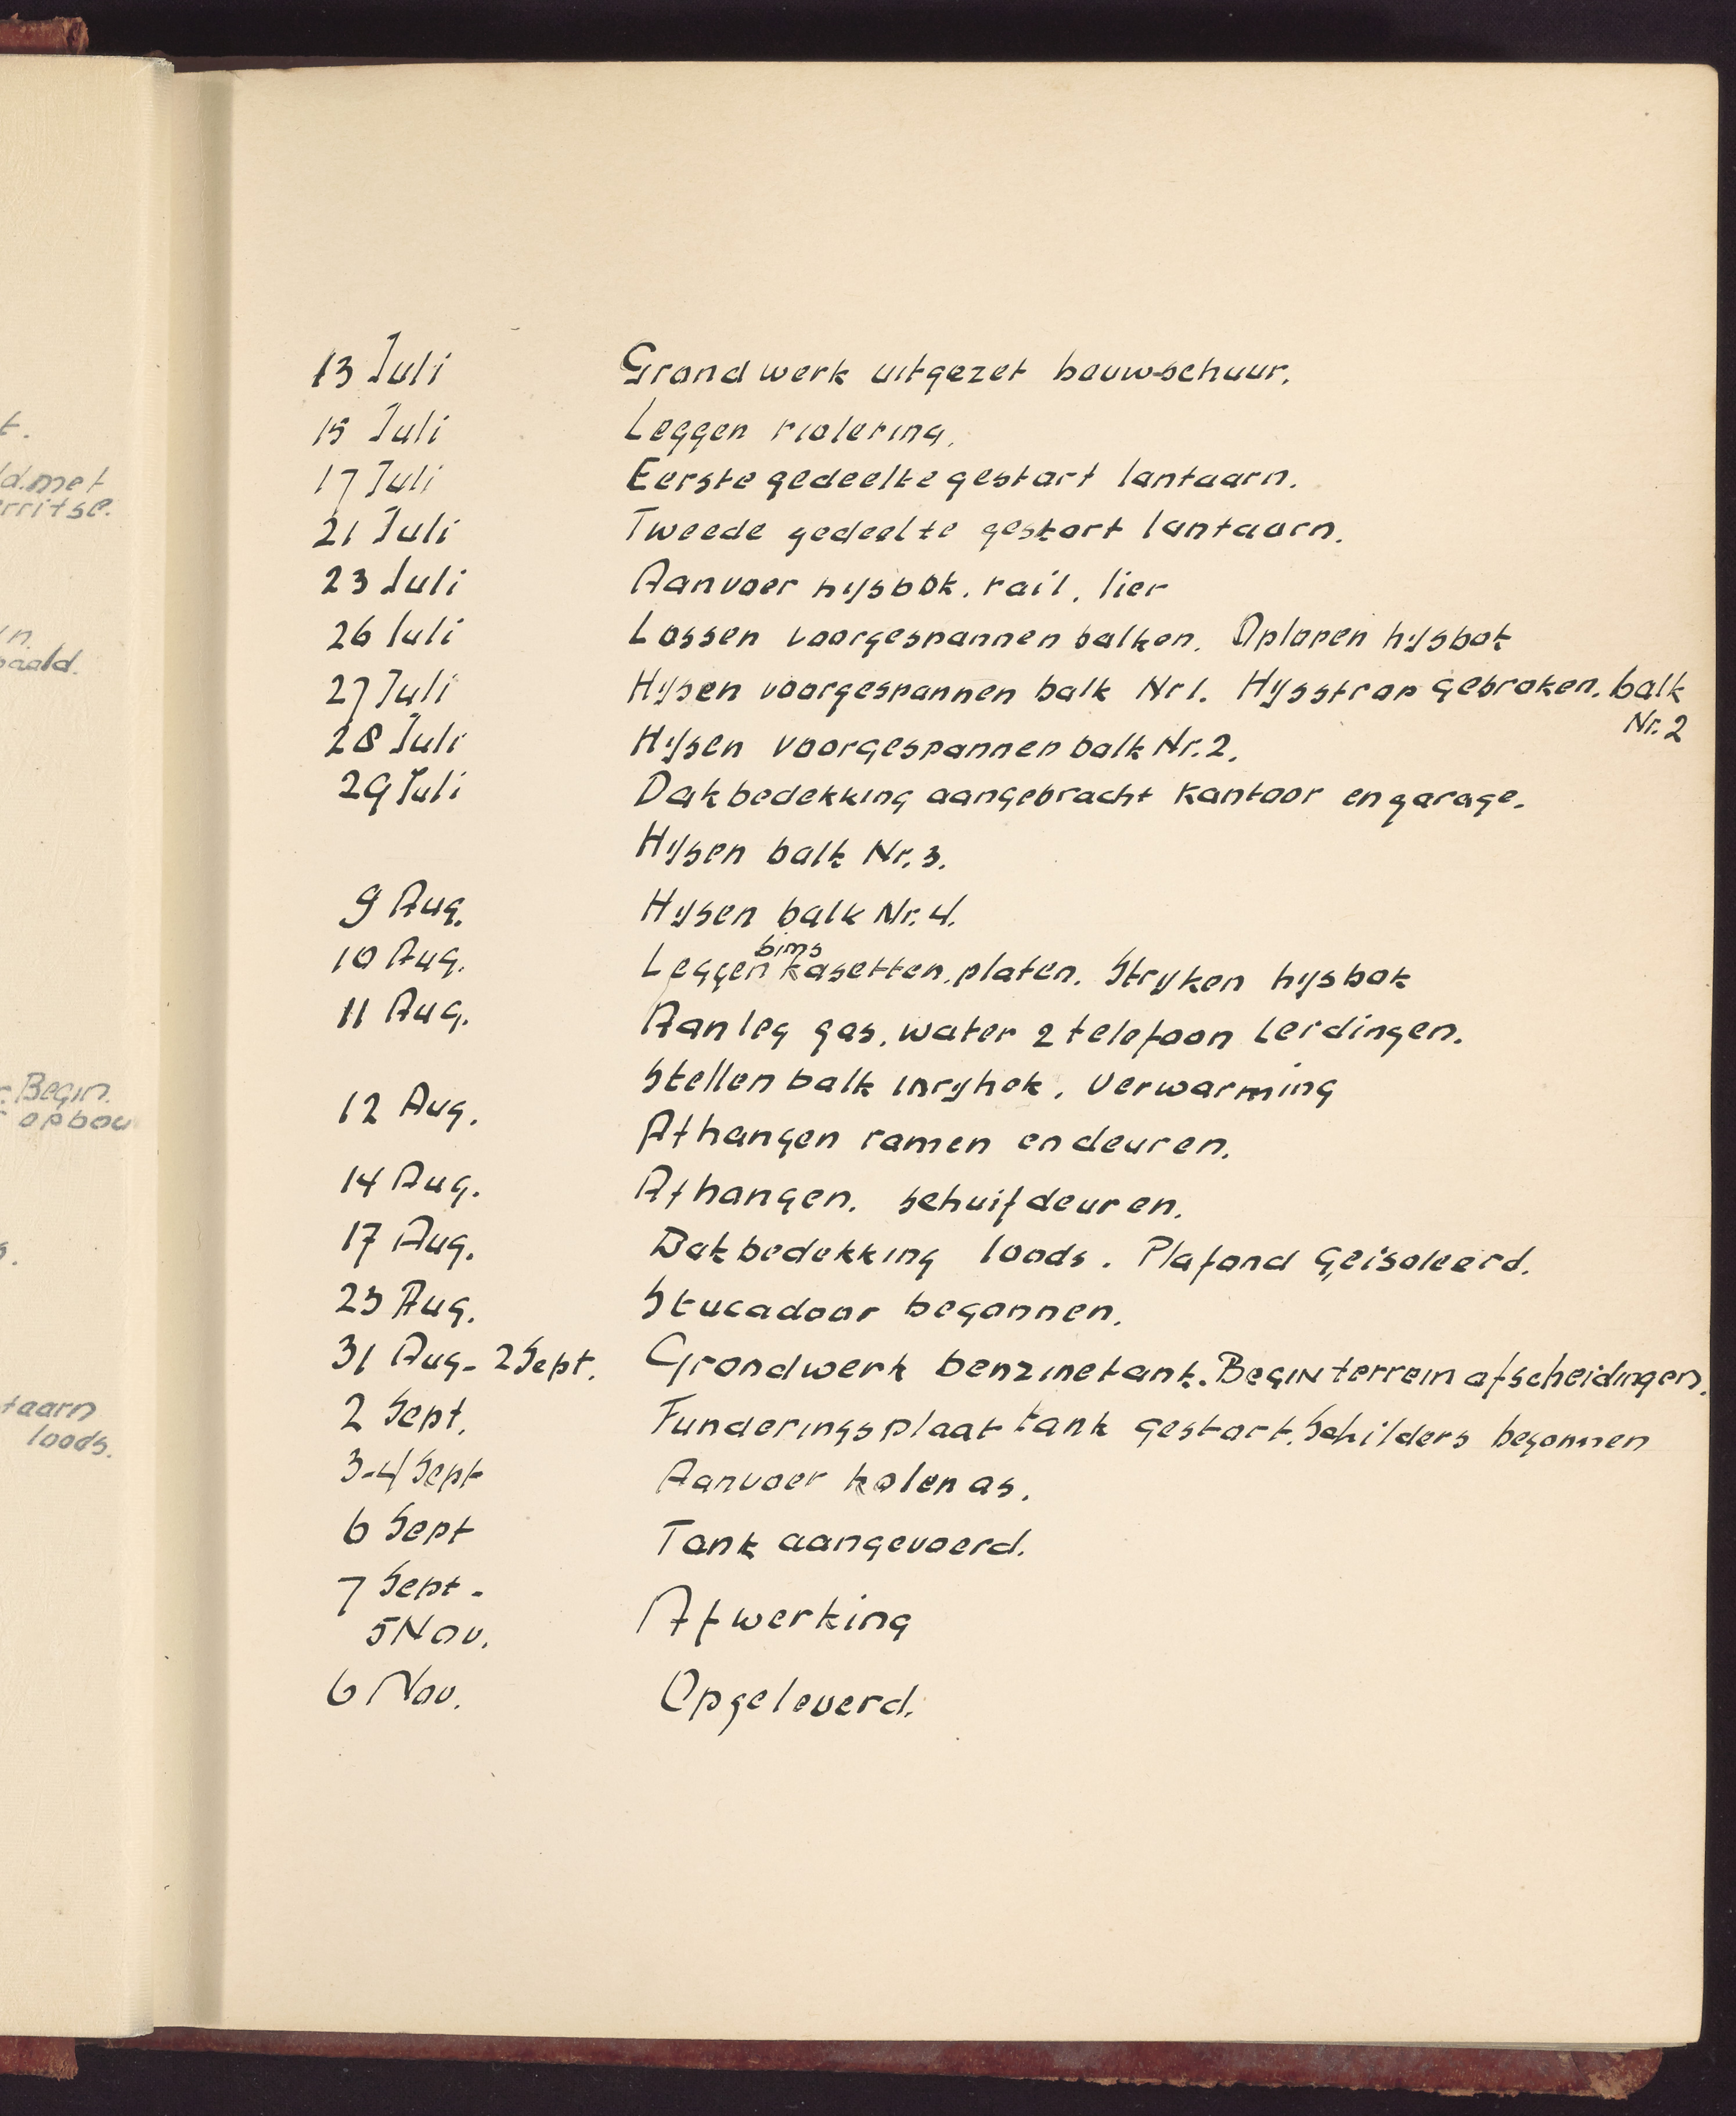 t.
ld.met
erritse.
in.
paald.
r. Begin.
opbou
s.
taarn
loods.
13 Juli Grondwerk uitgezet bouwschuur.
15 Juli Leggen riolering.
17 Juli Eerste gedeelte gestort lantaarn.
21 Juli Tweede gedeelte gestort lantaarn.
23 Juli Aanvoer hijsbok, rail, lier
26 Juli Lossen voorgespannen balken. Oplopen hijsbok
27 Juli Hijsen voorgespannen balk Nr 1. Hijsstrop gebroken. balk
Nr. 2
28 Juli Hijsen voorgespannen balk Nr. 2.
29 Juli Dakbedekking aangebracht kantoor en garage.
Hijsen balk Nr. 3.
9 Aug. Hijsen balk Nr. 4.
bims
10 Aug. Leggen kasetten, platen. Strijken hijsbok
11 Aug. Aanleg gas, water 2 telefoon Leidingen.
Stellen balk inrijhek. Verwarming
12 Aug. Afhangen ramen en deuren.
14 Aug. Afhangen. schuifdeuren.
17 Aug. Dakbedekking loods. Plafond geisoleerd.
23 Aug. Stucadoor begonnen.
31 Aug - 2 Sept. Grondwerk benzinetank. Begin terrein afscheidingen.
2 Sept. Funderingsplaat tank gestort. Schilders begonnen
3-4 Sept Aanvoer kolen as.
6 Sept Tank aangevoerd.
7 Sept -
5 Nov. Afwerking
6 Nov. Opgeleverd.